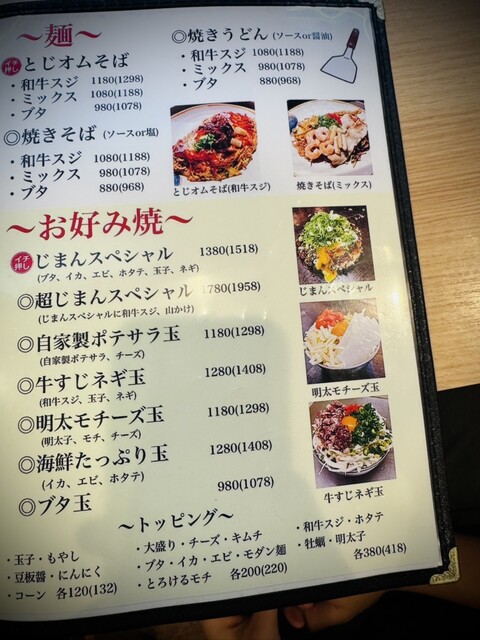 ～麺～
イチ押し とじオムそば
・和牛スジ 1180(1298)
・ミックス 1080(1188)
・ブタ 980(1078)
◎焼きそば (ソースor塩)
・和牛スジ 1080(1188)
・ミックス 980(1078)
・ブタ 880(968)
◎焼きうどん (ソースor醤油)
・和牛スジ 1080(1188)
・ミックス 980(1078)
・ブタ 880(968)
とじオムそば(和牛スジ)
焼きそば(ミックス)
～お好み焼～
イチ押し じまんスペシャル 1380(1518)
(ブタ、イカ、エビ、ホタテ、玉子、ネギ)
◎超じまんスペシャル 1780(1958)
(じまんスペシャルに和牛スジ、山かけ)
◎自家製ポテサラ玉 1180(1298)
(自家製ポテサラ、チーズ)
◎牛すじネギ玉 1280(1408)
(和牛スジ、玉子、ネギ)
◎明太モチーズ玉 1180(1298)
(明太子、モチ、チーズ)
◎海鮮たっぷり玉 1280(1408)
(イカ、エビ、ホタテ)
◎ブタ玉 980(1078)
じまんスペシャル
明太モチーズ玉
牛すじネギ玉
～トッピング～
・玉子・もやし
・豆板醤・にんにく
・コーン 各120(132)
・大盛り・チーズ・キムチ
・ブタ・イカ・エビ・モダン麺
・とろけるモチ 各200(220)
・和牛スジ・ホタテ
・牡蠣・明太子
各380(418)